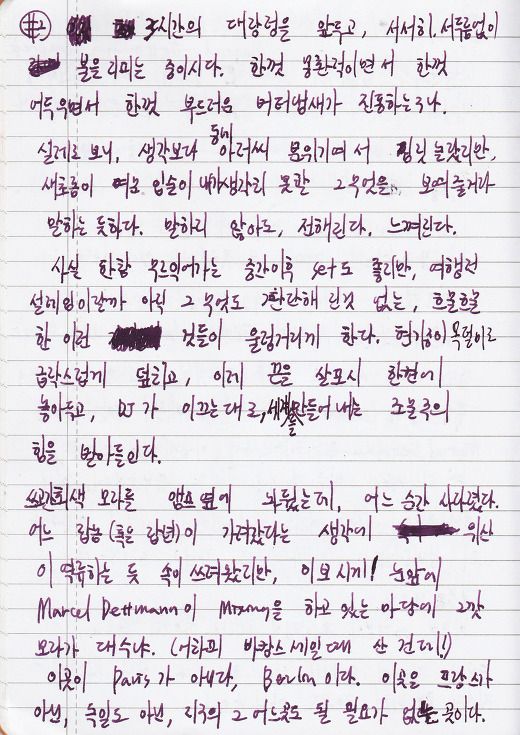 3시간의 대장정을 앞두고, 서서히, 서두름없이
불을 지피는 중이시다. 한껏 몽환적이면서 한껏
어두우면서 한껏 부드러움 버터냄새가 진동하는구나.
실제로 보니, 생각보다 동네아저씨 분위기여서 찔릿 놀랐지만,
새초롬이 여문 입술이 내가 생각지 못한 그 무엇을 보여줄거라
말하는 듯하다. 말하지 않아도, 전해진다. 느껴진다.
사실 한참 무르익어가는 중간이후 set도 좋지만, 여행전
설레임이랄까 아직 그 무엇도 판단해 진것 없는, 흐물흐물
한 이런 것들이 울렁거리게 한다. 현기증이 목덜미로
급작스럽게 덮치고, 이제 끈을 살포시 한켠에
놓아두고, DJ가 이끄는대로, 세계를 만들어 내는 조물주의
힘을 받아들인다.
진회색 모자를 앰프 옆에 놔뒀는데, 어느 순간 사라졌다.
어느 잡놈 (혹은 잡년)이 가져갔다는 생각에 위산
이 역류하는 듯 속이 쓰려왔지만, 이보시게! 눈앞에
Marcel Dettmann이 Mixing을 하고 있는 마당에 그깟
모자가 대수냐. (어차피 바캉스세일때 산 건데!)
이곳이 Paris가 아니다, Berlin이다. 이곳은 프랑스가
아닌, 독일도 아닌, 지구의 그 어느곳도 될 필요가 없는 곳이다.